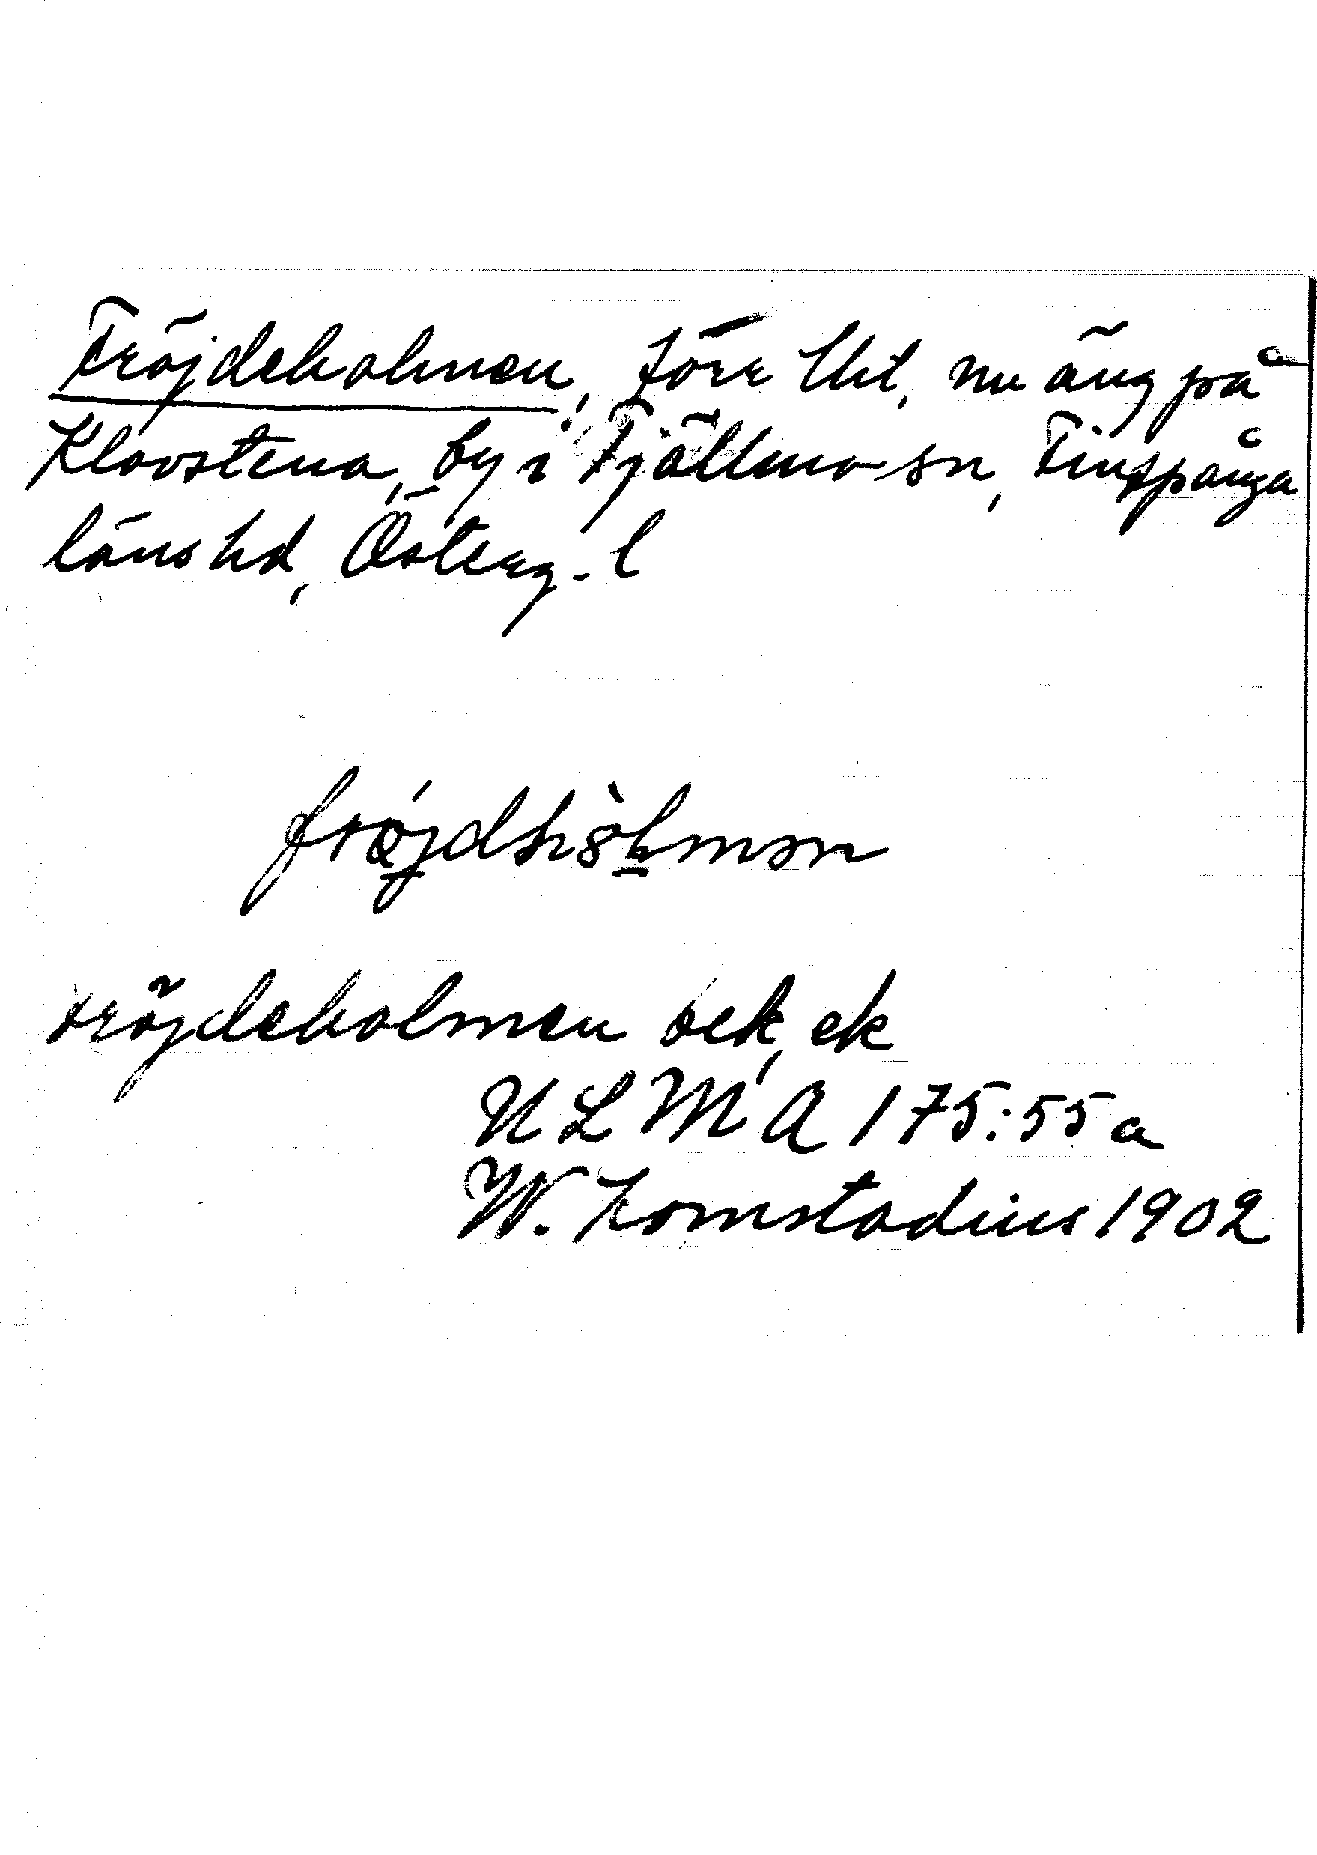 Fröjdeholmen, förr lht, nu äng på
Klovstena, by i Tjällmo sn, Finspånga
läns hd, Österg. l
fröjdhòlmən
Fröjdeholmen bek, ek
ULMA 175:55a
W. Lomstadius 1902